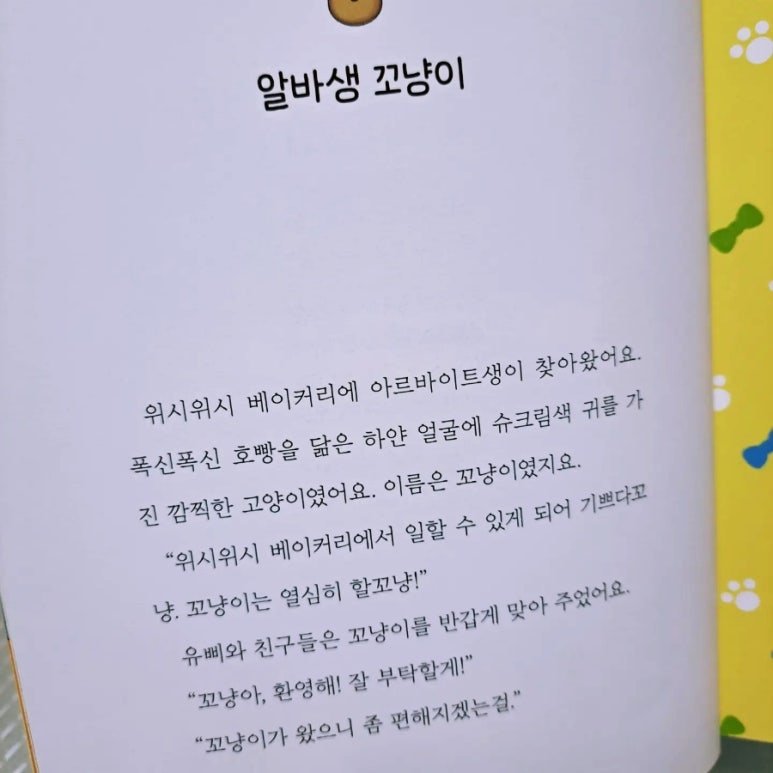 알바생 꼬냥이
위시위시 베이커리에 아르바이트생이 찾아왔어요.
폭신폭신 호빵을 닮은 하얀 얼굴에 슈크림색 귀를 가
진 깜찍한 고양이였어요. 이름은 꼬냥이였지요.
“위시위시 베이커리에서 일할 수 있게 되어 기쁘다꼬
냥. 꼬냥이는 열심히 할꼬냥!”
유삐와 친구들은 꼬냥이를 반갑게 맞아 주었어요.
“꼬냥아, 환영해! 잘 부탁할게!”
“꼬냥이가 왔으니 좀 편해지겠는걸.”